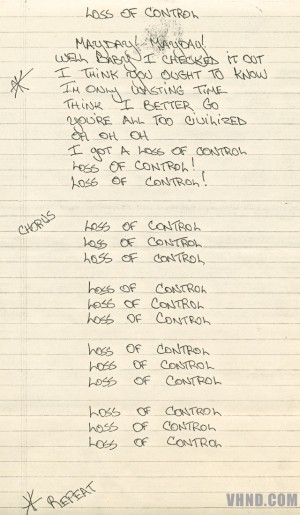 LOSS OF CONTROL
MAYDAY! MAYDAY!
WELL BABY I CHECKED IT OUT
I THINK YOU OUGHT TO KNOW
I'M ONLY WASTING TIME
THINK I BETTER GO
YOU'RE ALL TOO CIVILIZED
OH OH OH
I GOT A LOSS OF CONTROL
LOSS OF CONTROL!
LOSS OF CONTROL!
CHORUS
LOSS OF CONTROL
LOSS OF CONTROL
LOSS OF CONTROL
LOSS OF CONTROL
LOSS OF CONTROL
LOSS OF CONTROL
LOSS OF CONTROL
LOSS OF CONTROL
LOSS OF CONTROL
LOSS OF CONTROL
LOSS OF CONTROL
LOSS OF CONTROL
REPEAT
VHND.COM